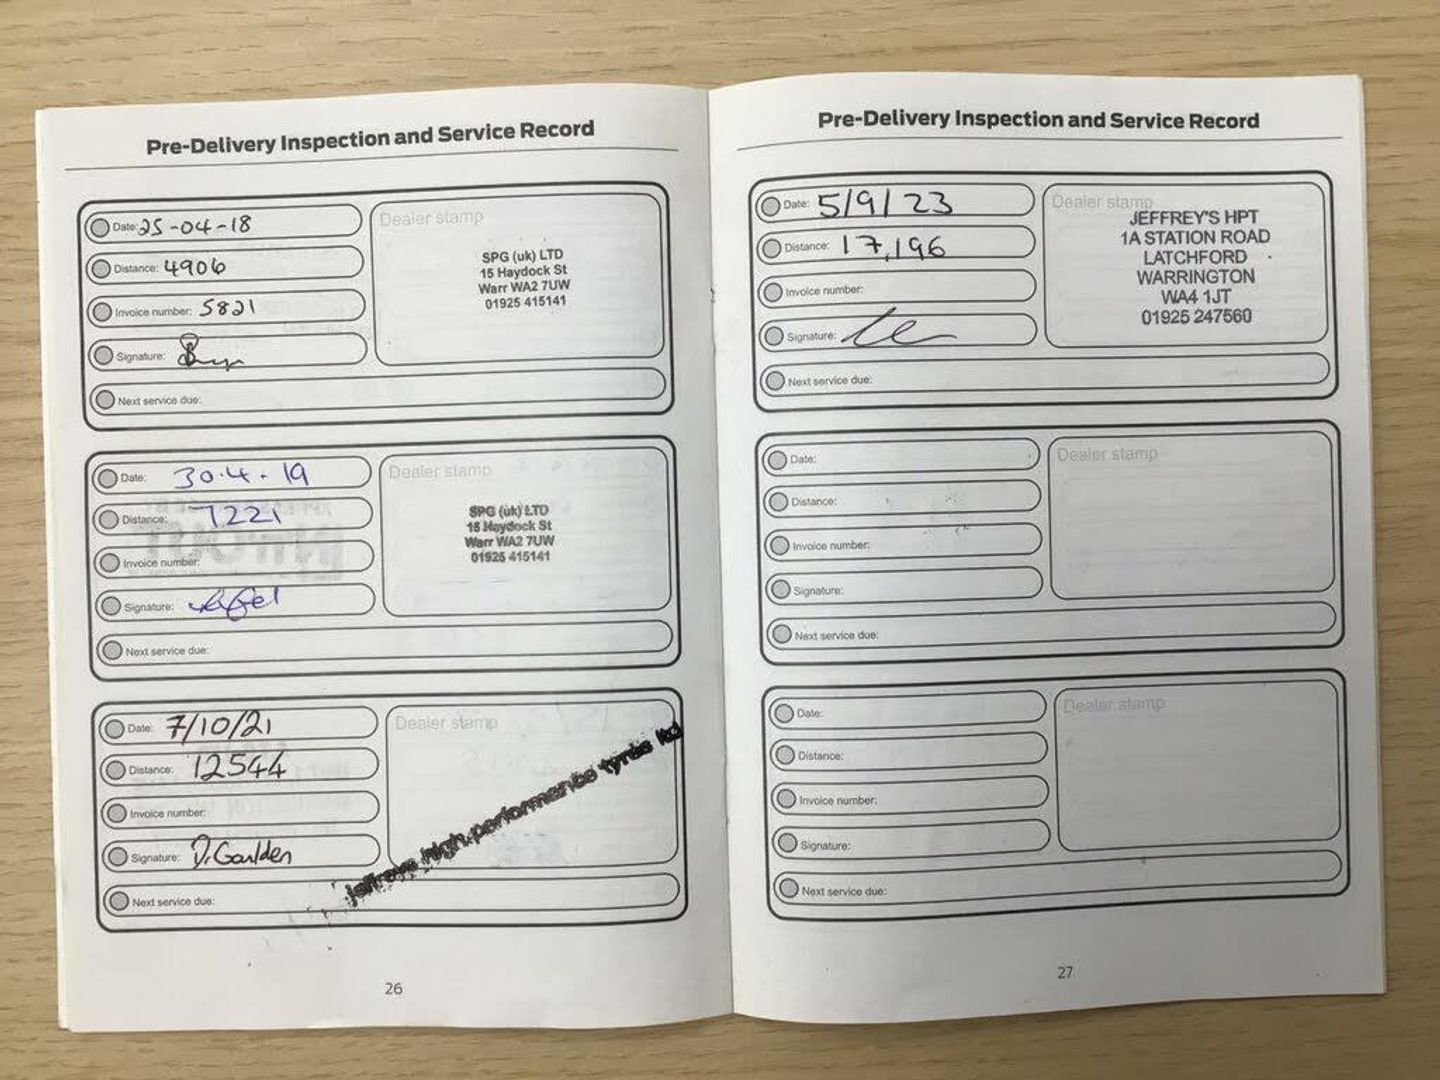 Pre-Delivery Inspection and Service Record
Date: 25-04-18
Distance: 4906
Invoice number: 5821
Signature:
Next service due:
Dealer stamp
SPG (uk) LTD
15 Haydock St
Warr WA2 7UW
01925 415141
Date: 30.4.19
Distance: 7221
Invoice number:
Signature:
Next service due:
Dealer stamp
SPG (uk) LTD
15 Haydock St
Warr WA2 7UW
01925 415141
Date: 7/10/21
Distance: 12544
Invoice number:
Signature: D. Goulden
Next service due:
Dealer stamp
jeffreys high performance tyres ltd
26
Pre-Delivery Inspection and Service Record
Date: 5/9/23
Distance: 17,196
Invoice number:
Signature:
Next service due:
Dealer stamp
JEFFREY'S HPT
1A STATION ROAD
LATCHFORD
WARRINGTON
WA4 1JT
01925 247560
Date:
Distance:
Invoice number:
Signature:
Next service due:
Dealer stamp
Date:
Distance:
Invoice number:
Signature:
Next service due:
Dealer stamp
27